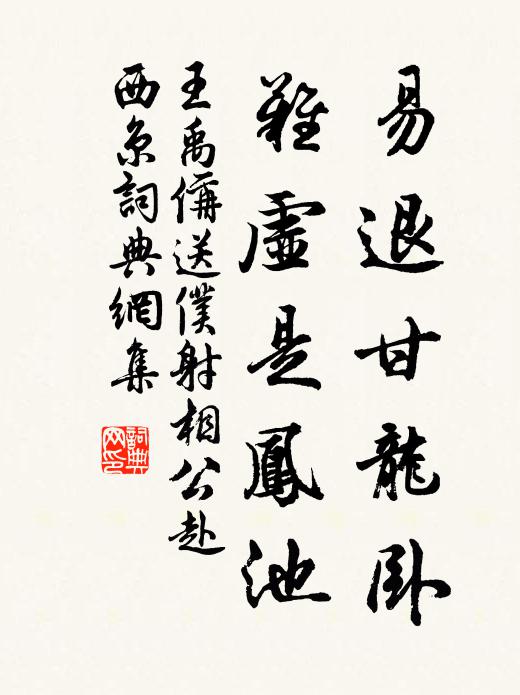 易退甘龍卧
難虛是鳳池
王禹偁送僕射相公赴
西京詞典網集
詞典网印